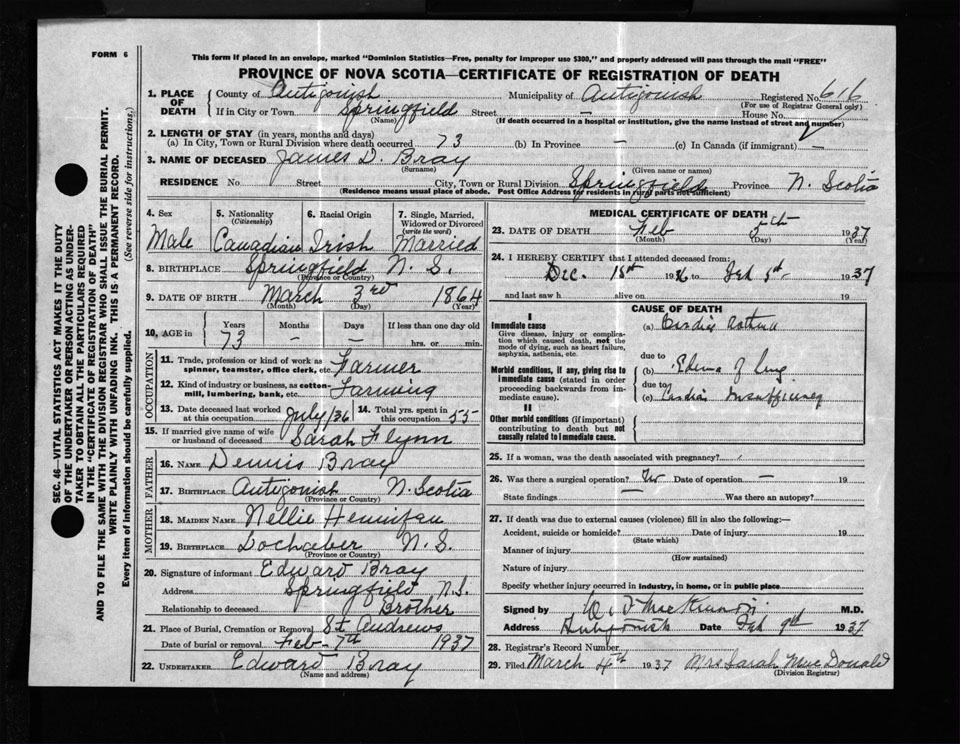 FORM 6
This form if placed in an envelope, marked "Dominion Statistics—Free, penalty for improper use $300," and properly addressed will pass through the mail "FREE"
PROVINCE OF NOVA SCOTIA—CERTIFICATE OF REGISTRATION OF DEATH
1. PLACE OF DEATH County of Antigonish Municipality of Antigonish Registered No. 616
(For use of Registrar General only)
If in City or Town Springfield Street — House No.
(Name) (If death occurred in a hospital or institution, give the name instead of street and number)
2. LENGTH OF STAY (in years, months and days)
(a) In City, Town or Rural Division where death occurred 73 (b) In Province — (c) In Canada (if immigrant) —
3. NAME OF DECEASED James D. Bray
(Surname) (Given name or names)
RESIDENCE No Street City, Town or Rural Division Springfield Province N. Scotia
(Residence means usual place of abode. Post Office Address for residents in rural parts not sufficient)
4. Sex Male
5. Nationality (Citizenship) Canadian
6. Racial Origin Irish
7. Single, Married, Widowed or Divorced (write the word) Married
8. BIRTHPLACE Springfield N. S.
(Province or Country)
9. DATE OF BIRTH March 3rd 1864
(Month) (Day) (Year)
10. AGE in Years Months Days If less than one day old
73 — — hrs. or min.
OCCUPATION
11. Trade, profession or kind of work as spinner, teamster, office clerk, etc. Farmer
12. Kind of industry or business, as cotton-mill, lumbering, bank, etc. Farming
13. Date deceased last worked at this occupation July/36
14. Total yrs. spent in this occupation 55
15. If married give name of wife or husband of deceased Sarah Flynn
FATHER
16. NAME Dennis Bray
17. BIRTHPLACE Antigonish N. Scotia
(Province or Country)
MOTHER
18. MAIDEN NAME Nellie
19. BIRTHPLACE Lochaber N. S.
(Province or Country)
20. Signature of informant Edward Bray
Address Springfield N.S.
Relationship to deceased Brother
21. Place of Burial, Cremation or Removal St Andrews
Date of burial or removal Feb - 7th 1937
22. UNDERTAKER Edward Bray
(Name and address)
MEDICAL CERTIFICATE OF DEATH
23. DATE OF DEATH Feb 5th 1937
(Month) (Day) (Year)
24. I HEREBY CERTIFY that I attended deceased from:
Dec. 18th 1936 to Feb 5th 1937
and last saw h alive on 19
CAUSE OF DEATH
I
Immediate cause
Give disease, injury or complication which caused death, not the mode of dying, such as heart failure, asphyxia, asthenia, etc.
(a) Cardiac asthma
due to
Morbid conditions, if any, giving rise to immediate cause (stated in order proceeding backwards from immediate cause).
(b) Edema of Lung
due to
(c) Cardiac Insufficiency
II
Other morbid conditions (if important) contributing to death but not causally related to immediate cause.
25. If a woman, was the death associated with pregnancy?
26. Was there a surgical operation? No Date of operation — 19
State findings — Was there an autopsy?
27. If death was due to external causes (violence) fill in also the following:—
Accident, suicide or homicide? Date of injury 19
(State which)
Manner of injury
(How sustained)
Nature of injury
Specify whether injury occurred in industry, in home, or in public place
Signed by M.D.
Address Antigonish Date Feb 9th 1937
28. Registrar's Record Number
29. Filed March 4th 1937 Mrs Sarah MacDonald
(Division Registrar)
SEC. 46—VITAL STATISTICS ACT MAKES IT THE DUTY
OF THE UNDERTAKER OR PERSON ACTING AS UNDER-
TAKER TO OBTAIN ALL THE PARTICULARS REQUIRED
IN THE "CERTIFICATE OF REGISTRATION OF DEATH"
AND TO FILE THE SAME WITH THE DIVISION REGISTRAR WHO SHALL ISSUE THE BURIAL PERMIT.
WRITE PLAINLY WITH UNFADING INK. THIS IS A PERMANENT RECORD.
Every item of information should be carefully supplied. (See reverse side for instructions.)